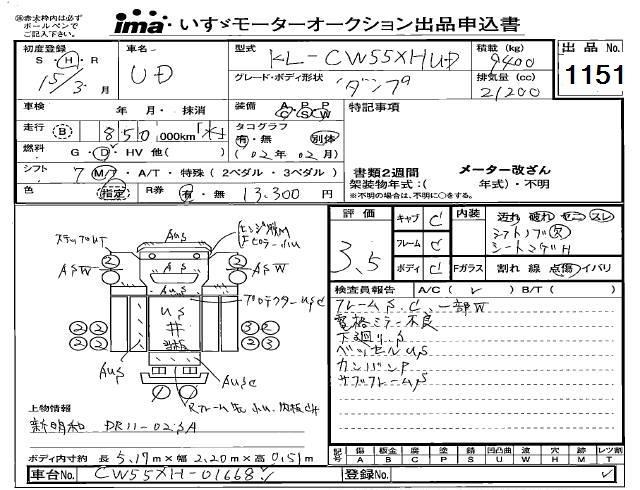 ㊟赤太枠内は必ず
ボールペンで
ご記入下さい。
ima いすゞモーターオークション出品申込書
初度登録
S・H・R
15/3 月
車名
UD
型式
KL-CW55XHUD
積載 (kg)
9400
グレード・ボディ形状
ダンプ
排気量 (cc)
21200
出品 No.
1151
車検 年・月・抹消
装備 A/C P/S P/W
特記事項
走行 B 850,000km
タコグラフ
有・無 別体
(02年02月)
燃料 G・D・HV 他( )
シフト 7 M/T・A/T・特殊(2ペダル・3ペダル)
書類2週間 メーター改ざん
架装物年式:( 年式)・不明
※不明の場合は、不明に○をする。
色 指定 R券 有・無 13,300円
評価
3.5
キャブ C
フレーム C
ボディ C
内装 汚れ 破れ ヤニ スレ
シフトノブ 欠
シートマゲH
Fガラス 割れ 線 点傷 イバリ
検査員報告 A/C( ✓ ) B/T( )
フレームS.C、一部W
電格ミラー不良
下廻りS
ベッセルUS
カンバンP
サブフレームS
ステップUT
AUS
ASW
AUS
ASW
プロテクターUSC
US
AUS
AUSC
② ② ② ②
② ② ② ② ③ ② ② ②
上物情報
新明和 DR11-02SA
ボディ内寸約 長 5.17m×幅 2.20m×高 0.51m
記号 傷A 板金B 腐C 塗P 錆S 凹凸曲U 波W 穴H 跡M レツ割T
車台No. CW55XH-01668
登録No.